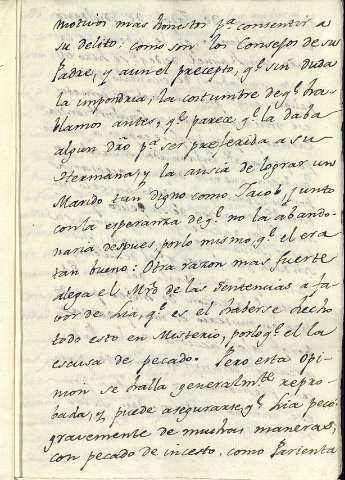 motivos mas honestos pa. consentir a
su delito; como son los Consejos de su
Padre, y aun el precepto, qe. sin duda
la impondria; la costumbre de qe. ha-
blamos antes, qe. parece qe. la daba
algun dro. pa. ser preferida a su
Hermana; y la ansia de lograr un
Marido tan digno como Jacob junto
con la esperanza de qe. no la abando-
naria despues, por lo mismo, qe. el era
tan bueno: Otra razon mas fuerte
alega el Mro. de las Sentencias a fa-
vor de Lia, qe. es el haberse hecho
todo esto en Misterio, por lo qe. el la
escusa de pecado. Pero esta opi-
nion se halla generalmte. repro-
bada, y puede asegurarse, qe. Lia pecó
gravemente de muchas maneras,
con pecado de incesto, como Parienta